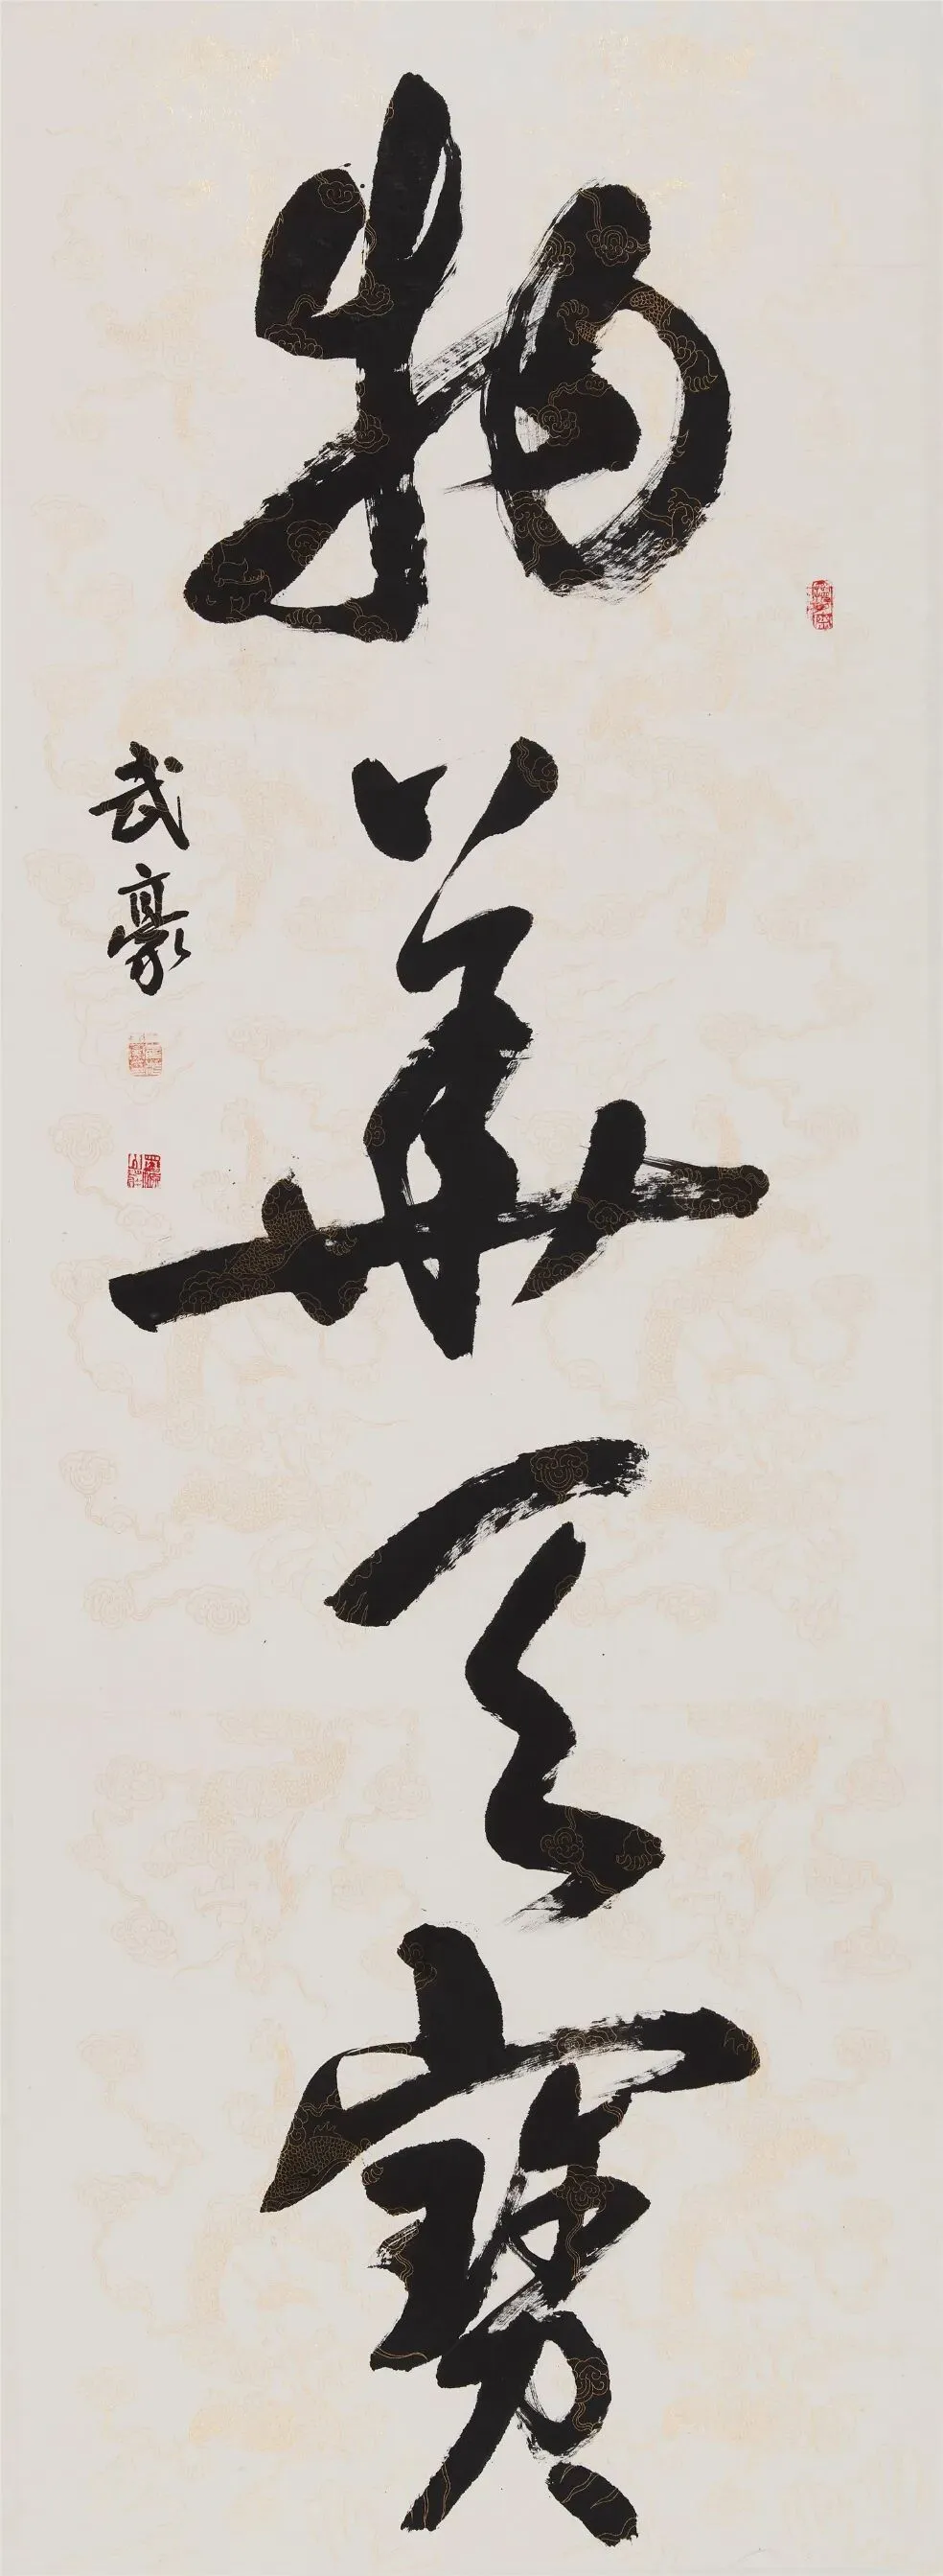 物華天寶
武豪